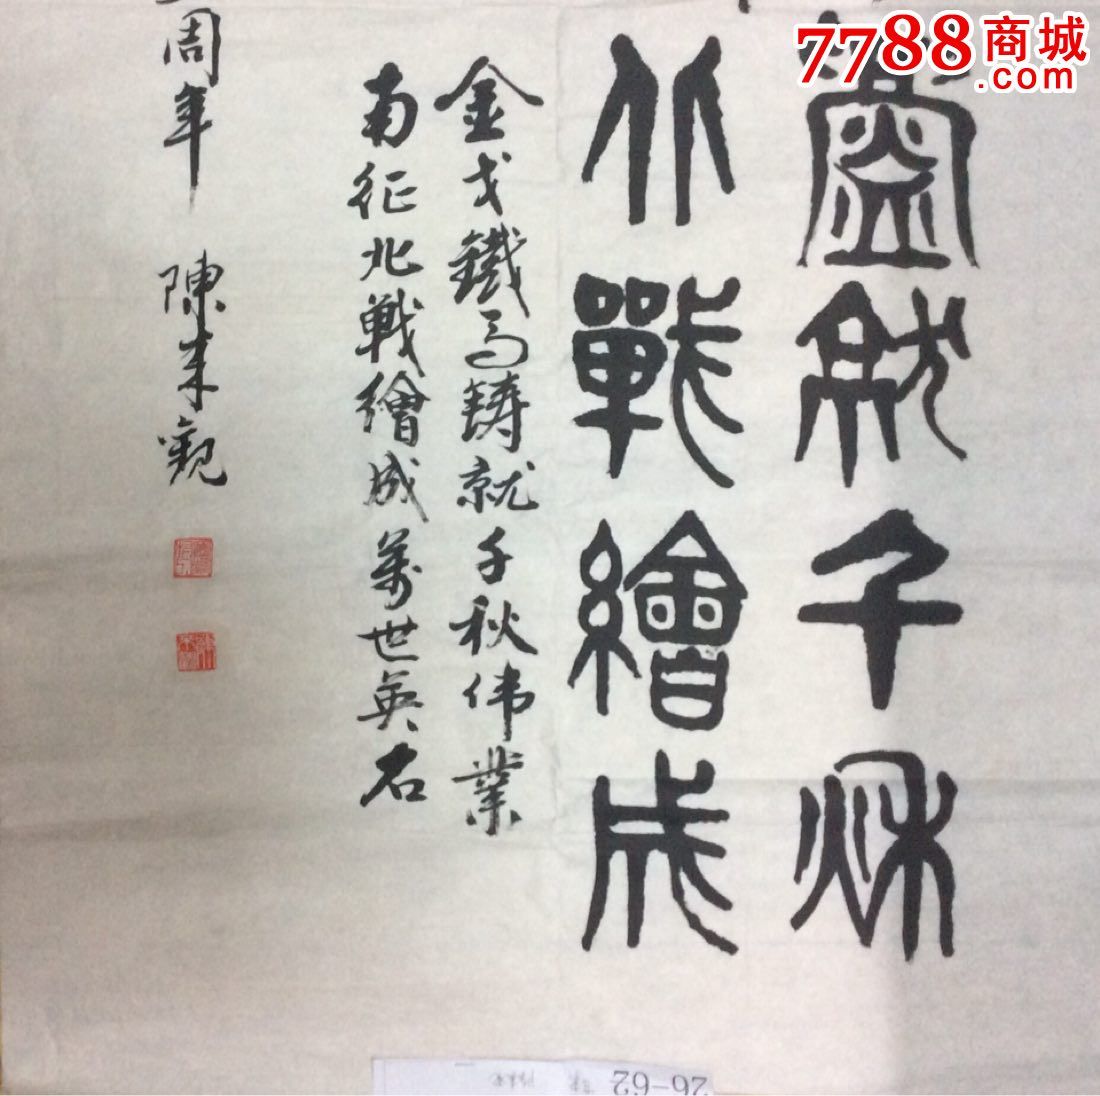 7788商城
.com
鑄就千秋
北戰繪成
金戈鐵马铸就千秋伟業
南征北戦繪成萬世英名
周年 陳来觀
26-62